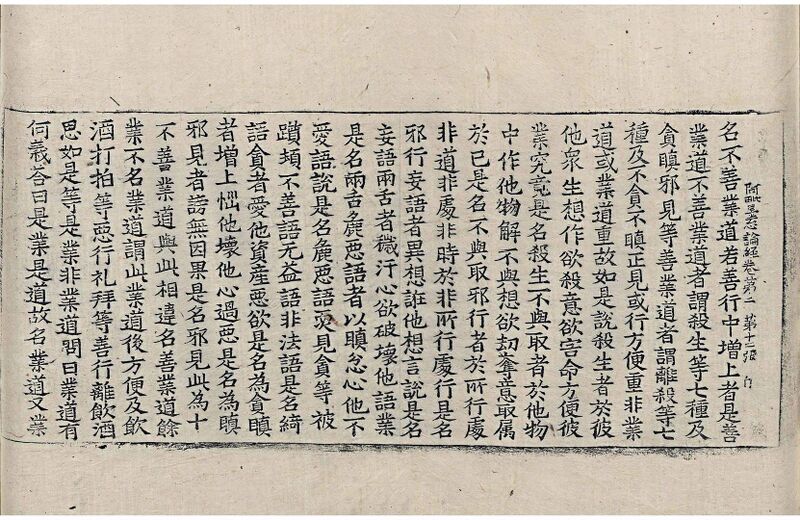 阿毗曇心論經卷第二 第十二張
名不善業道若善行中增上者是善
業道不善業道者謂殺生等七種及
貪瞋邪見等善業道者謂離殺等七
種及不貪不瞋正見或行方便重非業
道或業道重故如是說殺生者於彼
他衆生想作欲殺意欲害命方便彼
業究竟是名殺生不與取者於他物
中作他物解不與想欲刧奪意取属
於已是名不與取邪行者於所行處
非道非處非時於非所行處行是名
邪行妄語者異想誑他想言說是名
妄語兩舌者穢汙心欲破壞他語業
是名兩舌麁惡語者以瞋忿心他不
愛語說是名麁惡語見貪等彼
不善語无益語非法語是名綺
語貪者愛他資産惡欲是名為貪瞋
者增上他壞他心過惡是名為瞋
邪見者謗無因果是名邪見此為十
不善業道與此相違名善業道餘
業不名業道謂此業道後方便及飲
酒打拍等惡行礼拜等善行離飲酒
思如是等是業非業道問曰業道有
何義荅曰是業是道故名業道又業